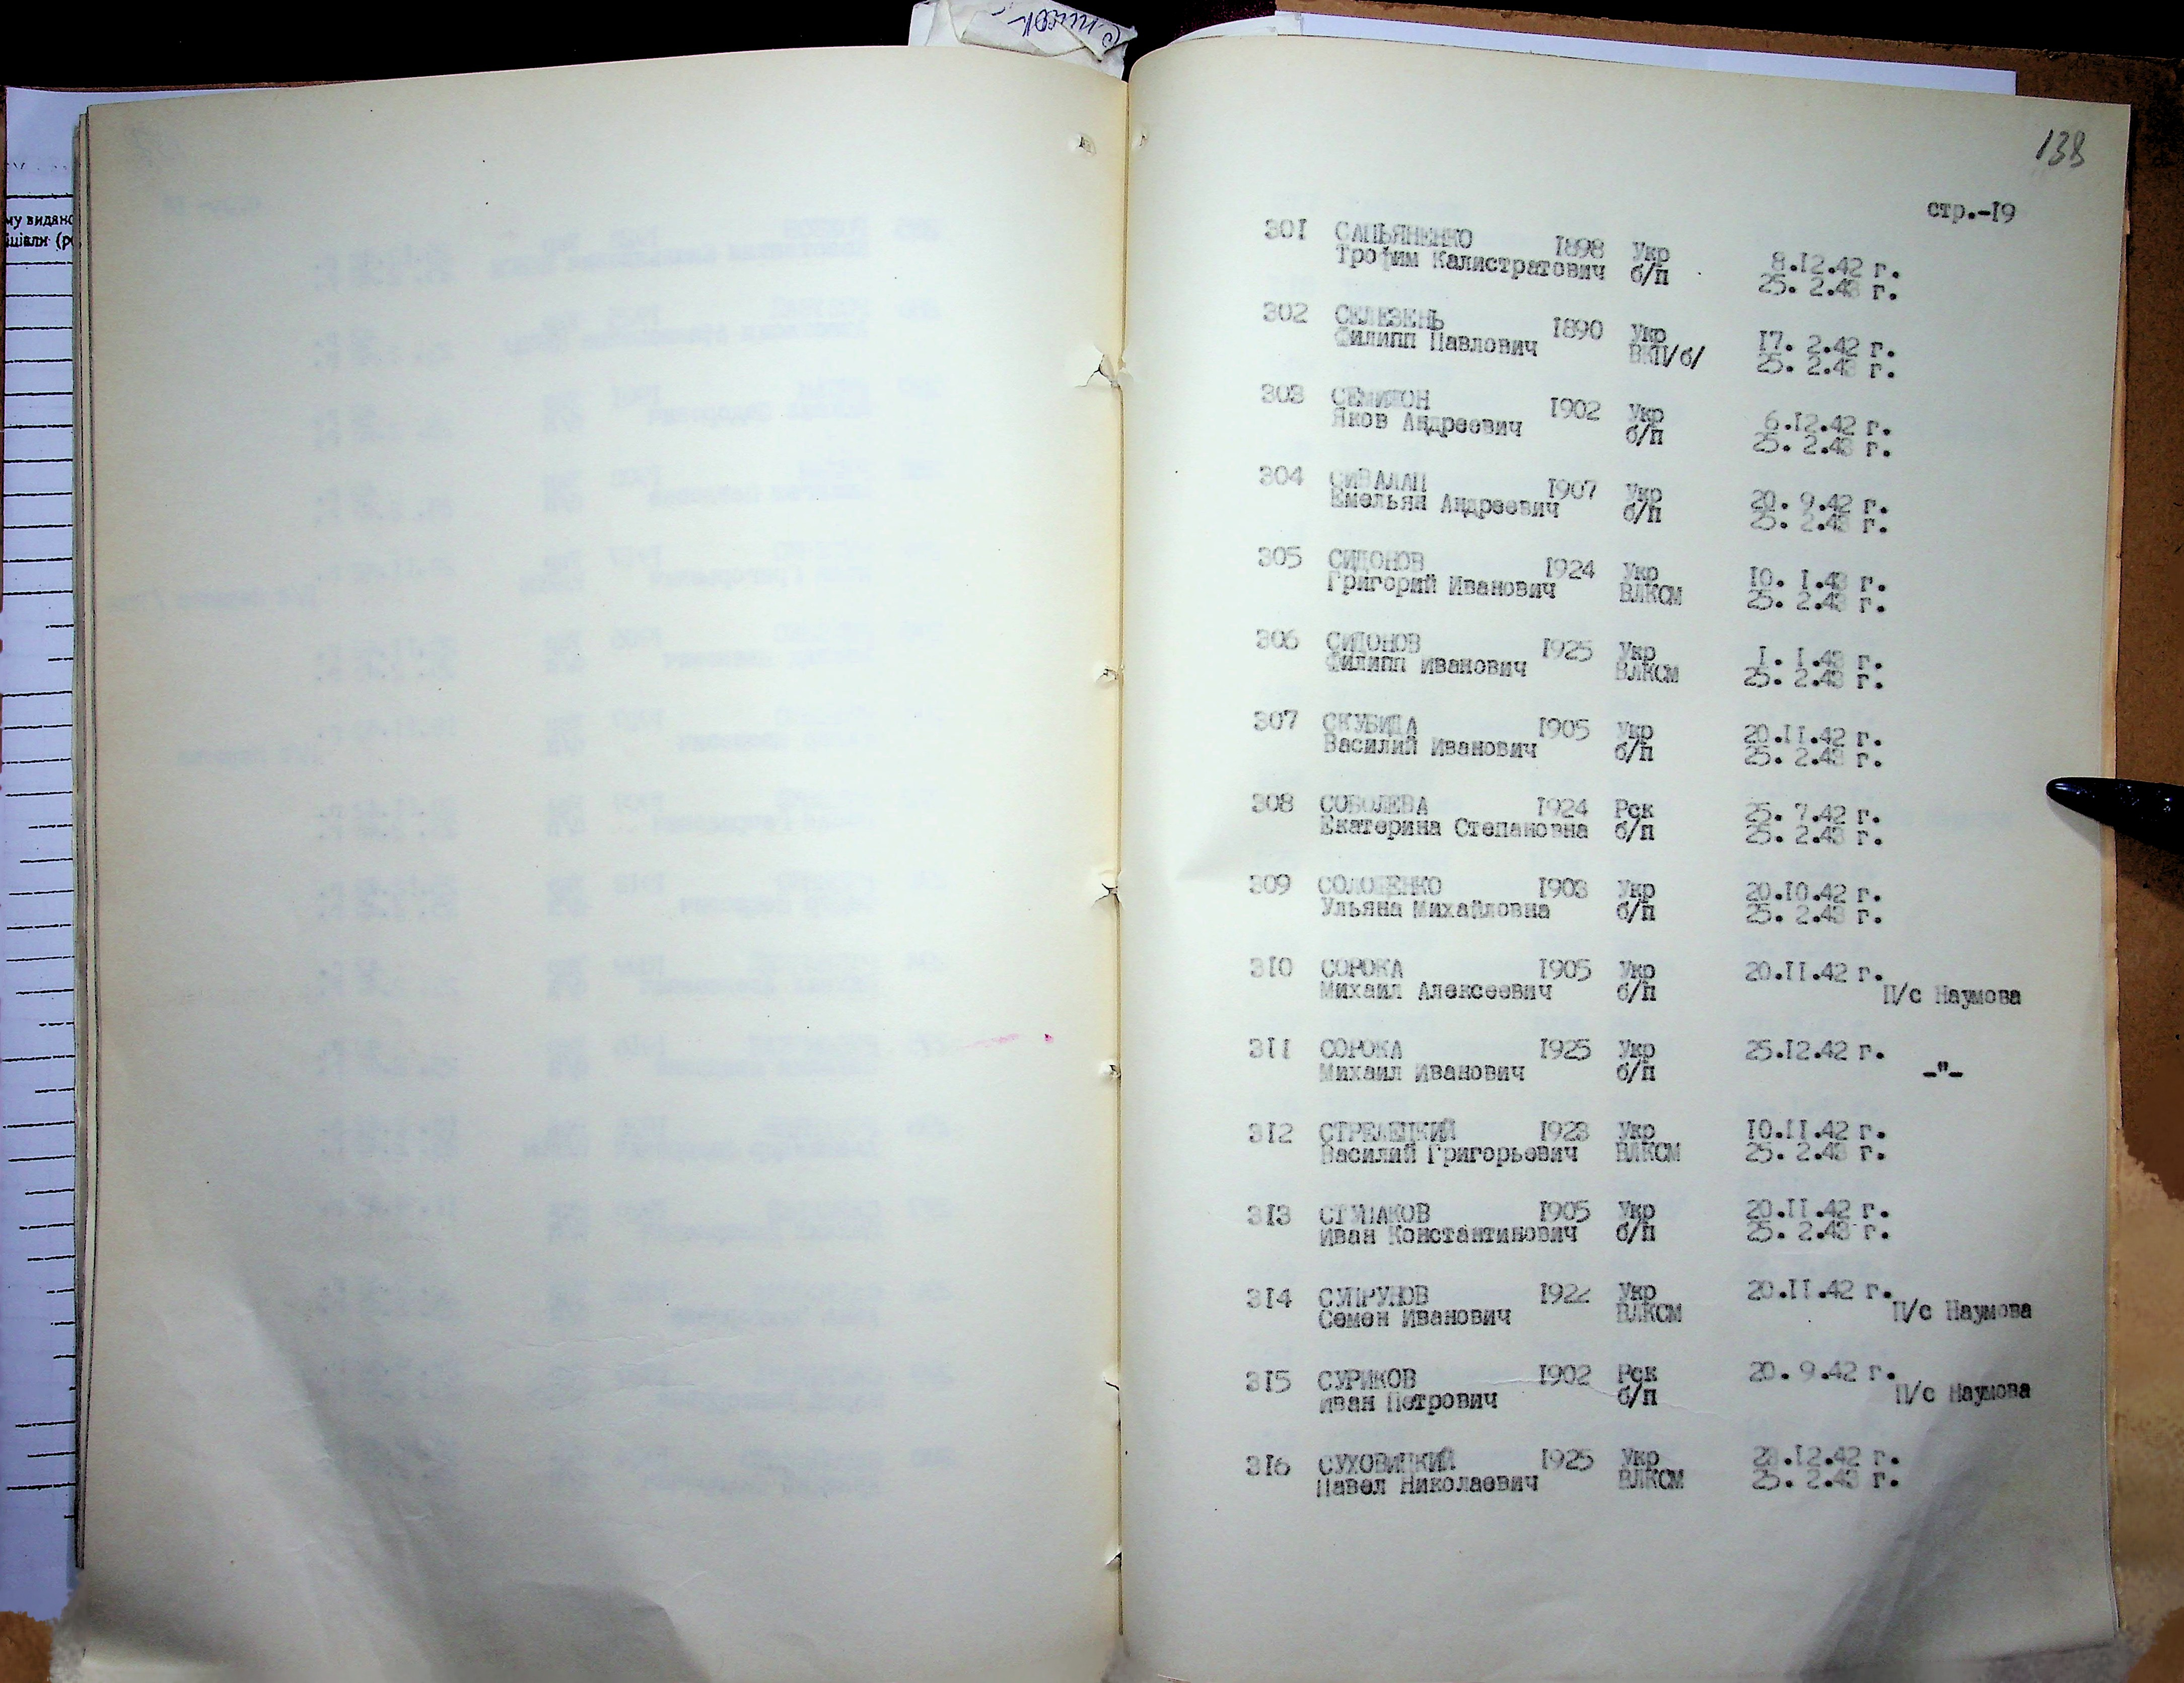 Список
му видано
138
стр.-19
301 САПЬЯНЕНКО 1898 Укр 8.12.42 г.
Трофим Калистратович б/п 25. 2.43 г.
302 СЕЛЕЗЕНЬ 1890 Укр 17. 2.42 г.
Филипп Павлович ВКП/б/ 25. 2.43 г.
303 1902 Укр 6.12.42 г.
Яков Андреевич б/п 25. 2.43 г.
304 1907 Укр 20. 9.42 г.
Емельян Андреевич б/п 25. 2.43 г.
305 СИДОНОВ 1924 Укр 10. 1.43 г.
Григорий Иванович ВЛКСМ 25. 2.43 г.
306 СИДОНОВ 1925 Укр 1. 1.43 г.
Филипп Иванович ВЛКСМ 25. 2.43 г.
307 СКУБИДА 1905 Укр 20.11.42 г.
Василий Иванович б/п 25. 2.43 г.
308 СОБОЛЕВА 1924 Рск 25. 7.42 г.
Екатерина Степановна б/п 25. 2.43 г.
309 1903 Укр 20.10.42 г.
Ульяна Михайловна б/п 25. 2.43 г.
310 СОРОКА 1905 Укр 20.11.42 г.
Михаил Алексеевич б/п П/с Наумова
311 СОРОКА 1925 Укр 25.12.42 г.
Михаил Иванович б/п -"-
312 СТРЕЛЕЦКИЙ 1923 Укр 10.11.42 г.
Василий Григорьевич ВЛКСМ 25. 2.43 г.
313 1905 Укр 20.11.42 г.
Иван Константинович б/п 25. 2.43 г.
314 СУПРУНОВ 1922 Укр 20.11.42 г.
Семен Иванович ВЛКСМ П/с Наумова
315 СУРИКОВ 1902 Рск 20. 9.42 г.
Иван Петрович б/п П/с Наумова
316 СУХОВИЦКИЙ 1925 Укр 28.12.42 г.
Павел Николаевич ВЛКСМ 25. 2.43 г.